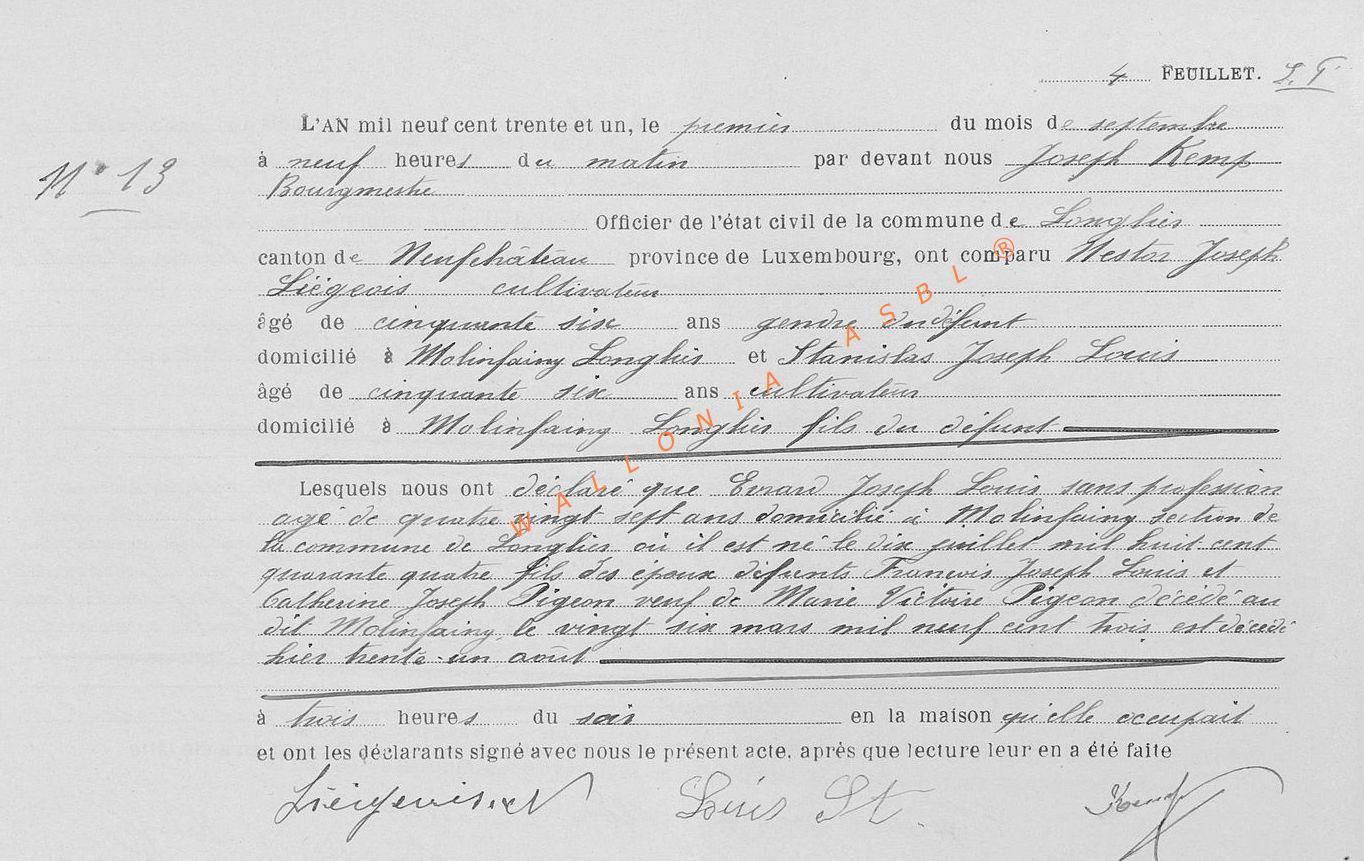 4 FEUILLET. L. T.
L'AN mil neuf cent trente et un, le premier du mois de septembre
N° 13
à neuf heures du matin par devant nous Joseph Kemp
Bourgmestre
Officier de l'état civil de la commune de Longlier
canton de Neufchâteau province de Luxembourg, ont comparu Nestor Joseph
Liégeois cultivateur
âgé de cinquante six ans gendre du défunt
domicilié à Molinfaing Longlier et Stanislas Joseph Louis
âgé de cinquante six ans cultivateur
domicilié à Molinfaing Longlier fils du défunt
Lesquels nous ont déclaré que Evrard Joseph Louis sans profession
agé de quatre vingt sept ans domicilié à Molinfaing section de
la commune de Longlier où il est né le dix juillet mil huit cent
quarante quatre fils des époux défunts François Joseph Louis et
Catherine Joseph Pigeon veuf de Marie Victoire Pigeon décédé au
dit Molinfaing le vingt six mars mil neuf cent trois est décédé
hier trente-un août
à trois heures du soir en la maison qu'elle occupait
et ont les déclarants signé avec nous le présent acte, après que lecture leur en a été faite
Liégeois N Louis St. Kemp
WALLONIA ASBL ®